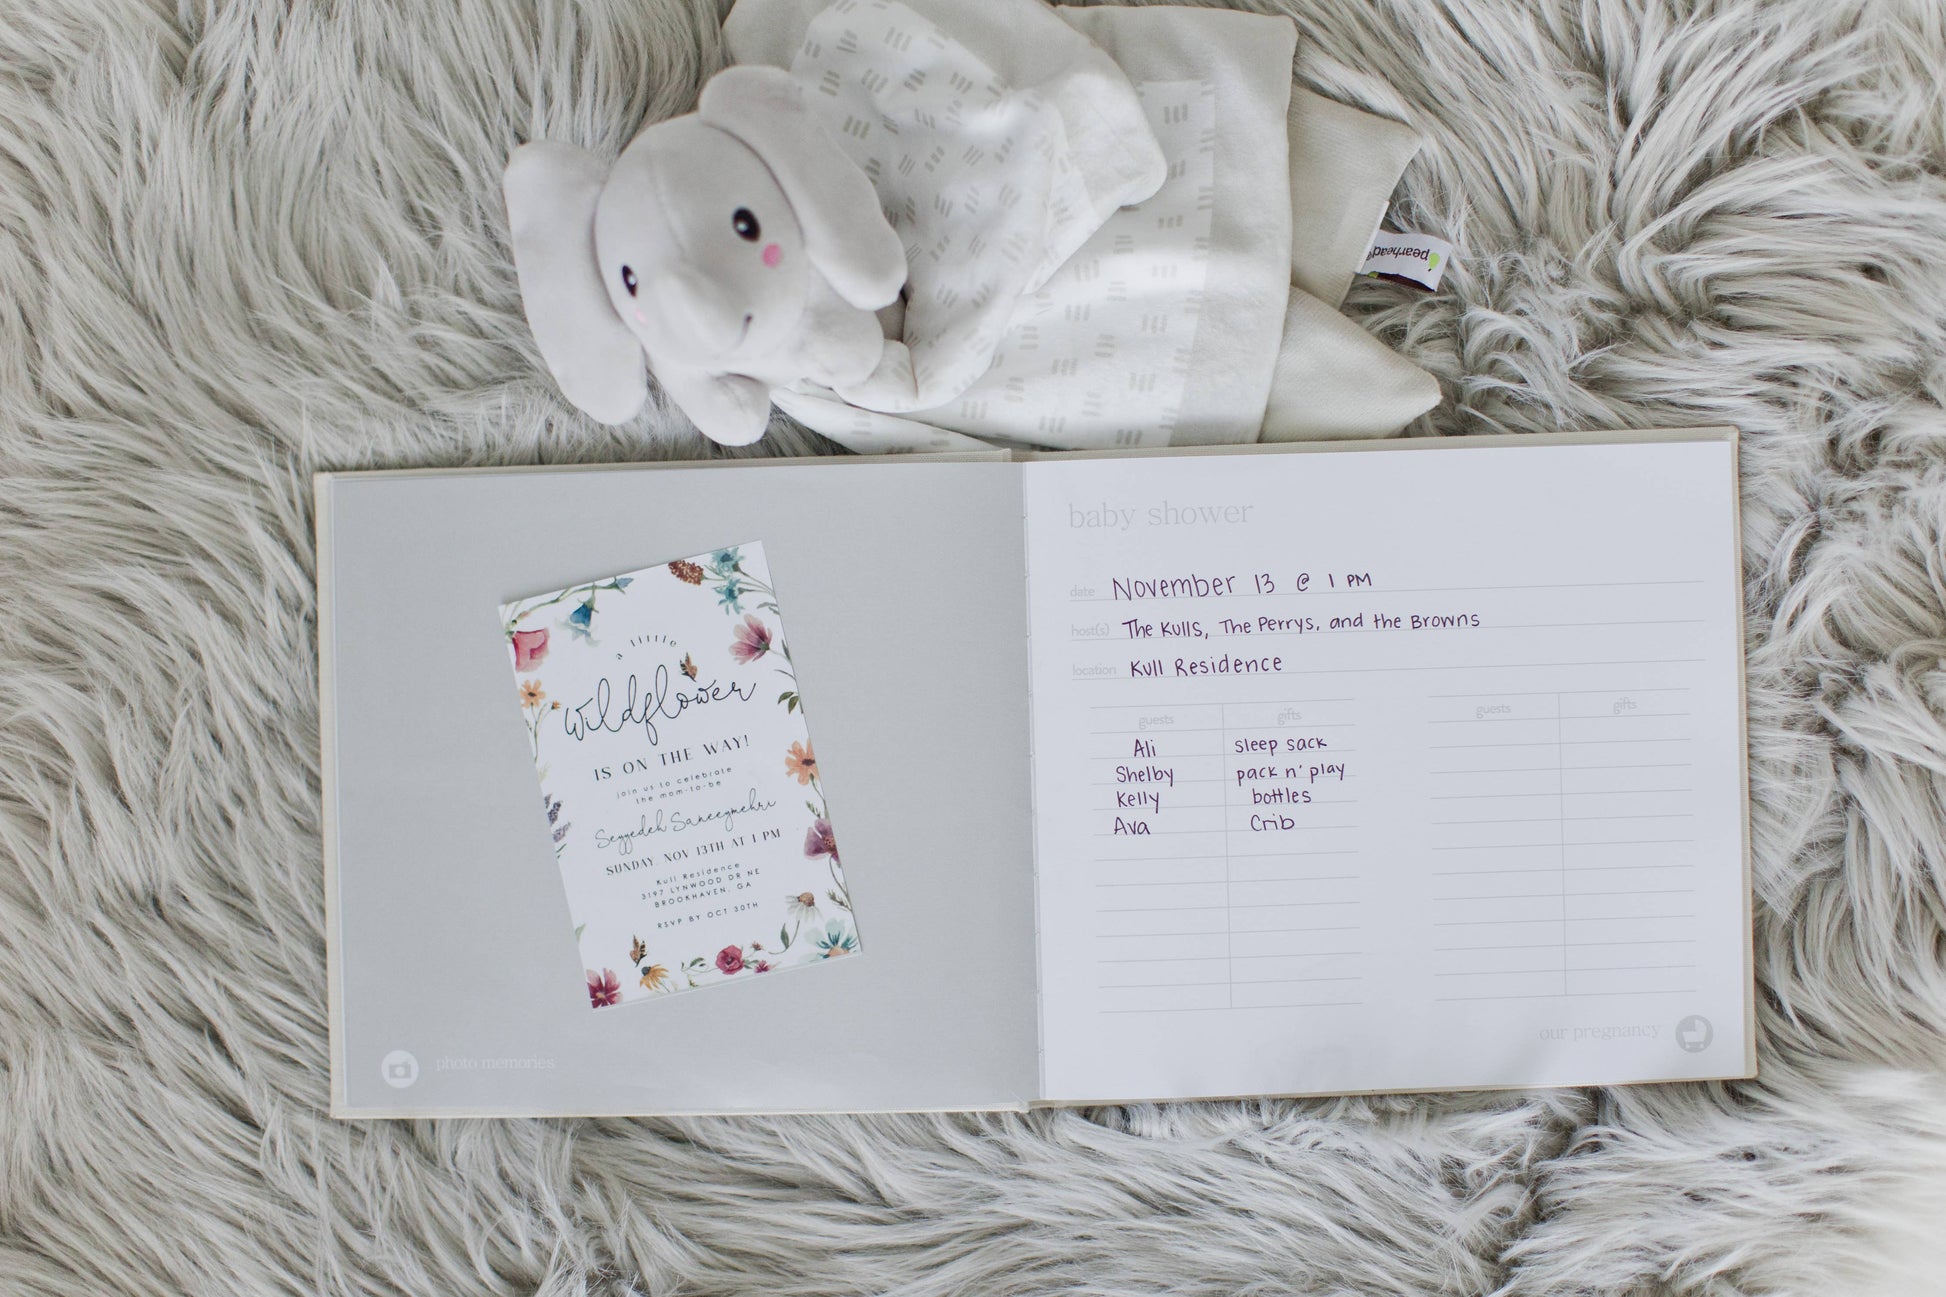 pearhead
a little
wildflower
IS ON THE WAY!
join us to celebrate
the mom-to-be
Seyyedeh Saneeymehri
SUNDAY, NOV 13TH AT 1 PM
Kull Residence
3197 LYNWOOD DR NE
BROOKHAVEN, GA
RSVP BY OCT 30TH
photo memories
baby shower
date November 13 @ 1 PM
host(s) The Kulls, The Perrys, and the Browns
location Kull Residence
guests gifts
Ali sleep sack
Shelby pack n' play
Kelly bottles
Ava Crib
guests gifts
our pregnancy